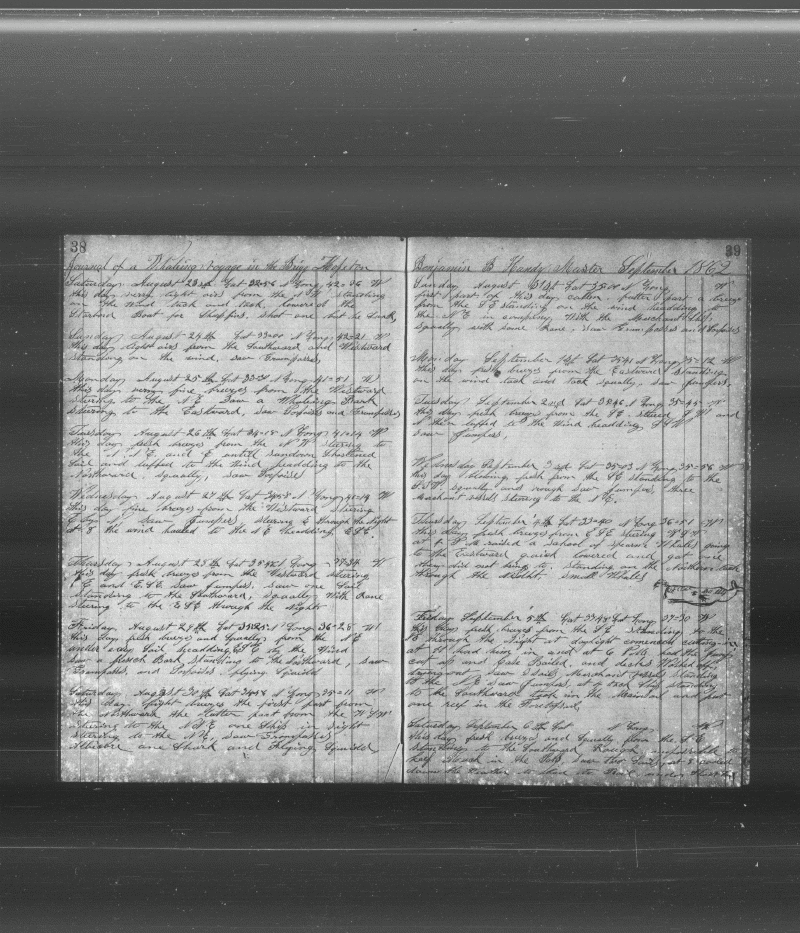 38
Journal of a Whaling voyage in the Brig
Saturday August 23rd Lat 32-56 N Long, 42=06 W
this day very light airs from the N W standing
on the Wind tack and tack, lowered the
Starbord Boat for shot one but he Sunk,
Sunday August 24th Lat 33=00 N Long, 42=21 W
this day light airs from the Southward and Westward
standing on the wind, saw Grampuses,
Monday August 25th Lat N Long, 41=51 W
this day very fine breezes from the Westward
stering to the N E Saw a Whaleing Bark
stering to the Eastward, saw Porpoises and Grampuses
Tuesday August 26th Lat 34=18 N Long 41=14 W
this day fresh breezes from the N W stering to
the N N E and E untill sundown Shortened
Sail and luffed to the Wind headding to the
Northward, Squally, Saw Porpoises
Wednesday August 27th Lat N Long, 40=14 W
this day fine breezes from the Westward stering
E by N saw Jumpers stering E through the Night
at 8 the wind hauled to the N E headding E S E,
Thursday August 28th Lat N Long W
this day fresh breezes from the Westward stering
E and E S E saw Jumpers, saw one Sail
standing to the Southward, Squally With Rane
stering to the E S E through the Night
Friday August 29th Lat N Long 36=28 W
this day fresh breezes and Squally from the N E
under easy Sail headding E S E by the Wind
saw a Bark standing to the Southward, saw
Grampuses and Porpoises flying Squidd
Saturday August 30th Lat N Long 35=11 W
this day light breezes the first part from
the Northward the Latter part from the W S W
stering to the N E, one Ship in Sight
stering to the N E, saw Grampuses
one Shark and Flying Squidd
39
Benjamin B Handy Master September 1862
Sunday August 31st Lat 35=00 N Long, W
first part of this day calm, latter part a breeze
from the S E standing on the wind headding to
the N E in company With the Merchant Ship,
Squally with some Rane, saw Grampuses and Porpoises
Monday September 1st Lat 35=41 N Long, 35=12 W
this day fresh breezes from the Eastward standing
on the wind tack and tack squally, saw Jumpers
Tuesday September 2nd Lat N Long 35=45 W
this day fresh breezes from the S E stered and
N then luffed to the wind headding, S S W
saw Jumpers,
Wednesday September 3rd Lat 35=03 N Long, 35=56 W
this day blowing fresh from the S E standing to the
S S W squally and rough saw Jumpers, three
Merchant Vessels stering to the N E,
Thursday September 4th Lat N Long 36=51 W
this day fresh breezes from E S E stering
at P M raised a School of Sperm Whales going
to the Eastward quick lowered and got one
they did not bring to, Standing on the Northern tack
through the Night Small Whales
Friday September 5th Lat 33=48 Lat Long, 37=30 W
this day fresh breezes from the S E standing to the
through the Night at daylight comenced cutting
at 11 had him in and at 6 P M had the Jung
cut up and Case Bailed, and decks Washed up
saw 2 Sails, Merchant Vessels standing
to the N E saw Jumpers at dark Ship standing
to the Southward took in the Mainsail and put
one reef in the Foretopsail,
Saturday September 6th Lat N Long, W
this day fresh breezes and Squally from the S E
standing to the Southward Rough impossible to
keep Blaack in the Pots, saw two Sail, at 8
down the